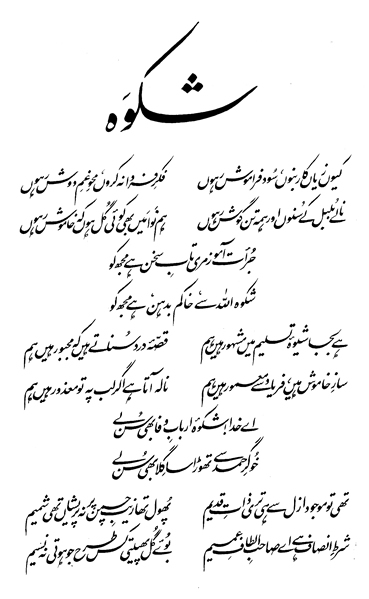 شکوَہ
کیوں زیاں کار بنوں، سُود فراموش رہوں فکرِ فردا نہ کروں محوِ غمِ دوش رہوں
نالے بُلبل کے سُنوں اور ہمہ تن گوش رہوں ہم نَوا مَیں بھی کوئی گُل ہوں کہ خاموش رہوں
جُرأت آموز مری تابِ سخن ہے مجھ کو
شکوہ اللہ سے، خاکم بدہن، ہے مجھ کو
ہے بجا شیوۂ تسلیم میں مشہور ہیں ہم قصّۂ درد سُناتے ہیں کہ مجبور ہیں ہم
سازِ خاموش ہیں، فریاد سے معمور ہیں ہم نالہ آتا ہے اگر لب پہ تو معذور ہیں ہم
اے خدا! شکوۂ اربابِ وفا بھی سُن لے
خُوگرِ حمد سے تھوڑا سا گِلا بھی سُن لے
تھی تو موجود ازل سے ہی تری ذاتِ قدیم پھُول تھا زیبِ چمن پر نہ پریشاں تھی شمیم
شرطِ انصاف ہے اے صاحبِ الطافِ عمیم بُوئے گُل پھیلتی کس طرح جو ہوتی نہ نسیم